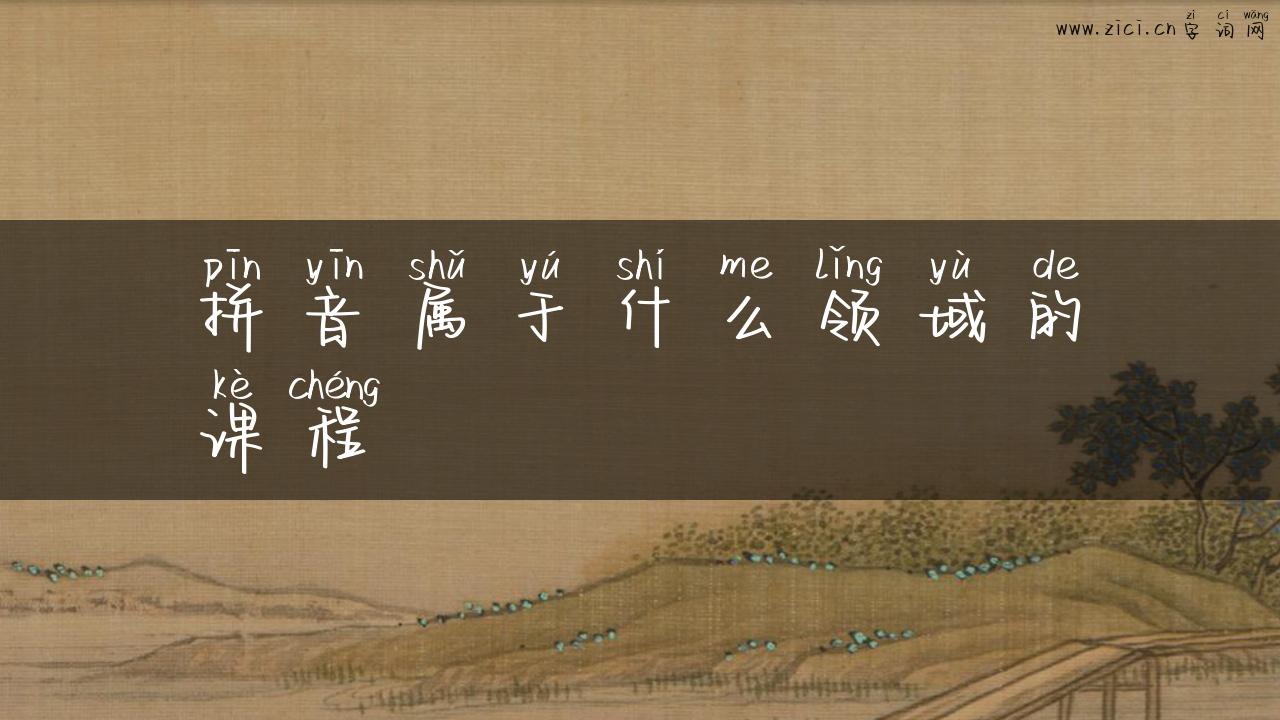 zì cí wǎng
www.zici.cn 字词网
pīn yīn shǔ yú shí me lǐng yù de
拼音属于什么领域的
kè chéng
课程